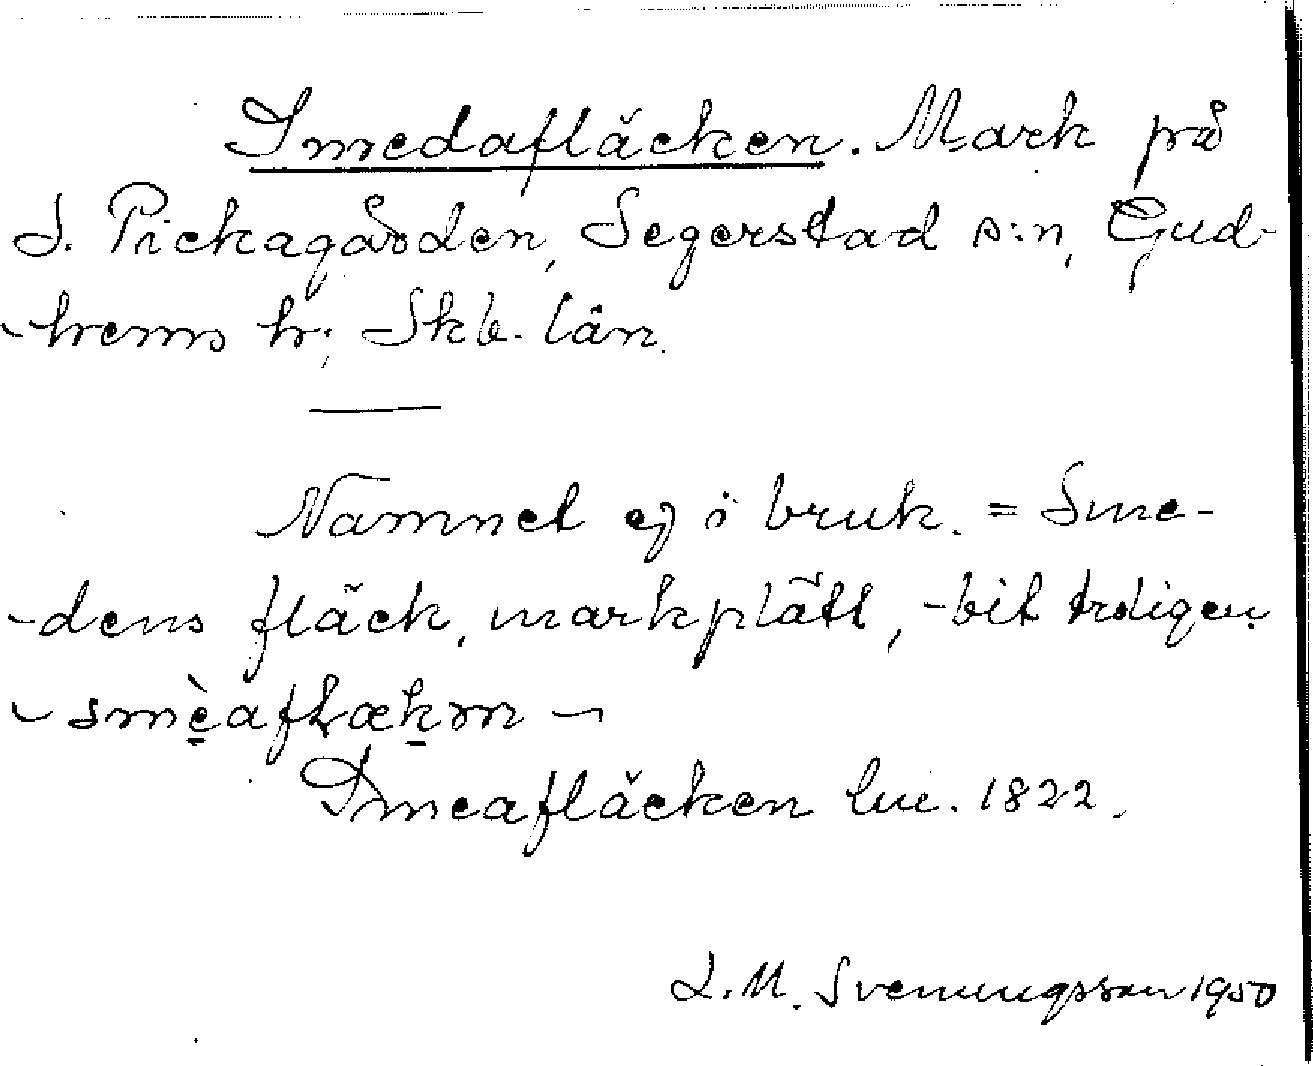 Smedafläcken. Mark på
S. Pickagården, Segerstad s:n, Gud-
-hems h; Skb. län.
Namnet ej i bruk. = Sme-
-dens fläck, markplätt, -bit troligen
- smèaflækm -
Smeafläcken lue. 1822.
L. M. Svenungsson 1950